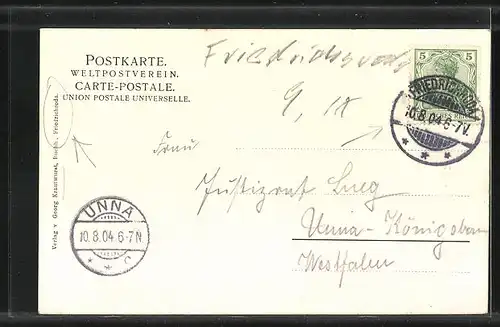 POSTKARTE.
WELTPOSTVEREIN.
CARTE-POSTALE.
UNION POSTALE UNIVERSELLE.
5 5
FRIEDRICHRODA
10.8.04 6-7V.
* * *
9. IX
Frau
Justizrat Lueg
Unna-Königsborn
Westfalen
UNNA
10.8.04 6-7N
* * c
Verlag v. Georg Krautwurst, Friedrichroda.